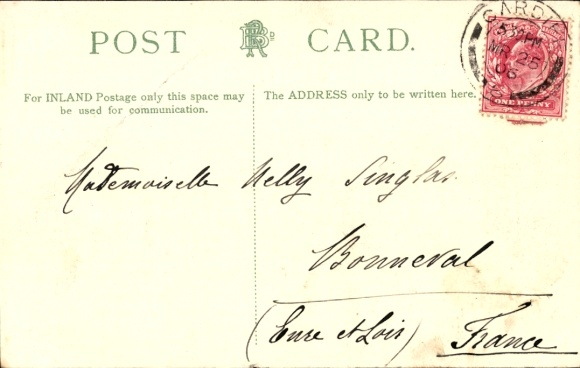 POST CARD.
For INLAND Postage only this space may
be used for communication.
The ADDRESS only to be written here.
CARDIFF
MR 25
06
ONE PENNY
Mademoiselle Nelly Singlas
Bonneval
(Eure et Loir) France